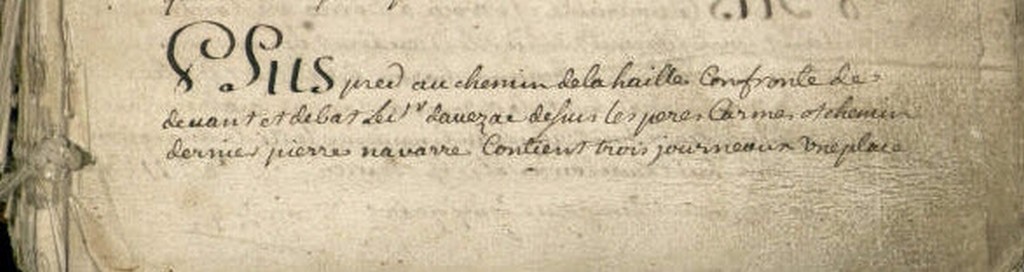 PLus pred au chemin dela haille Confronte de
deuant et debat Le sr dauezac desus les peres Carmes et chemin
dernier pierre nauarre Contient trois journeaux vne place